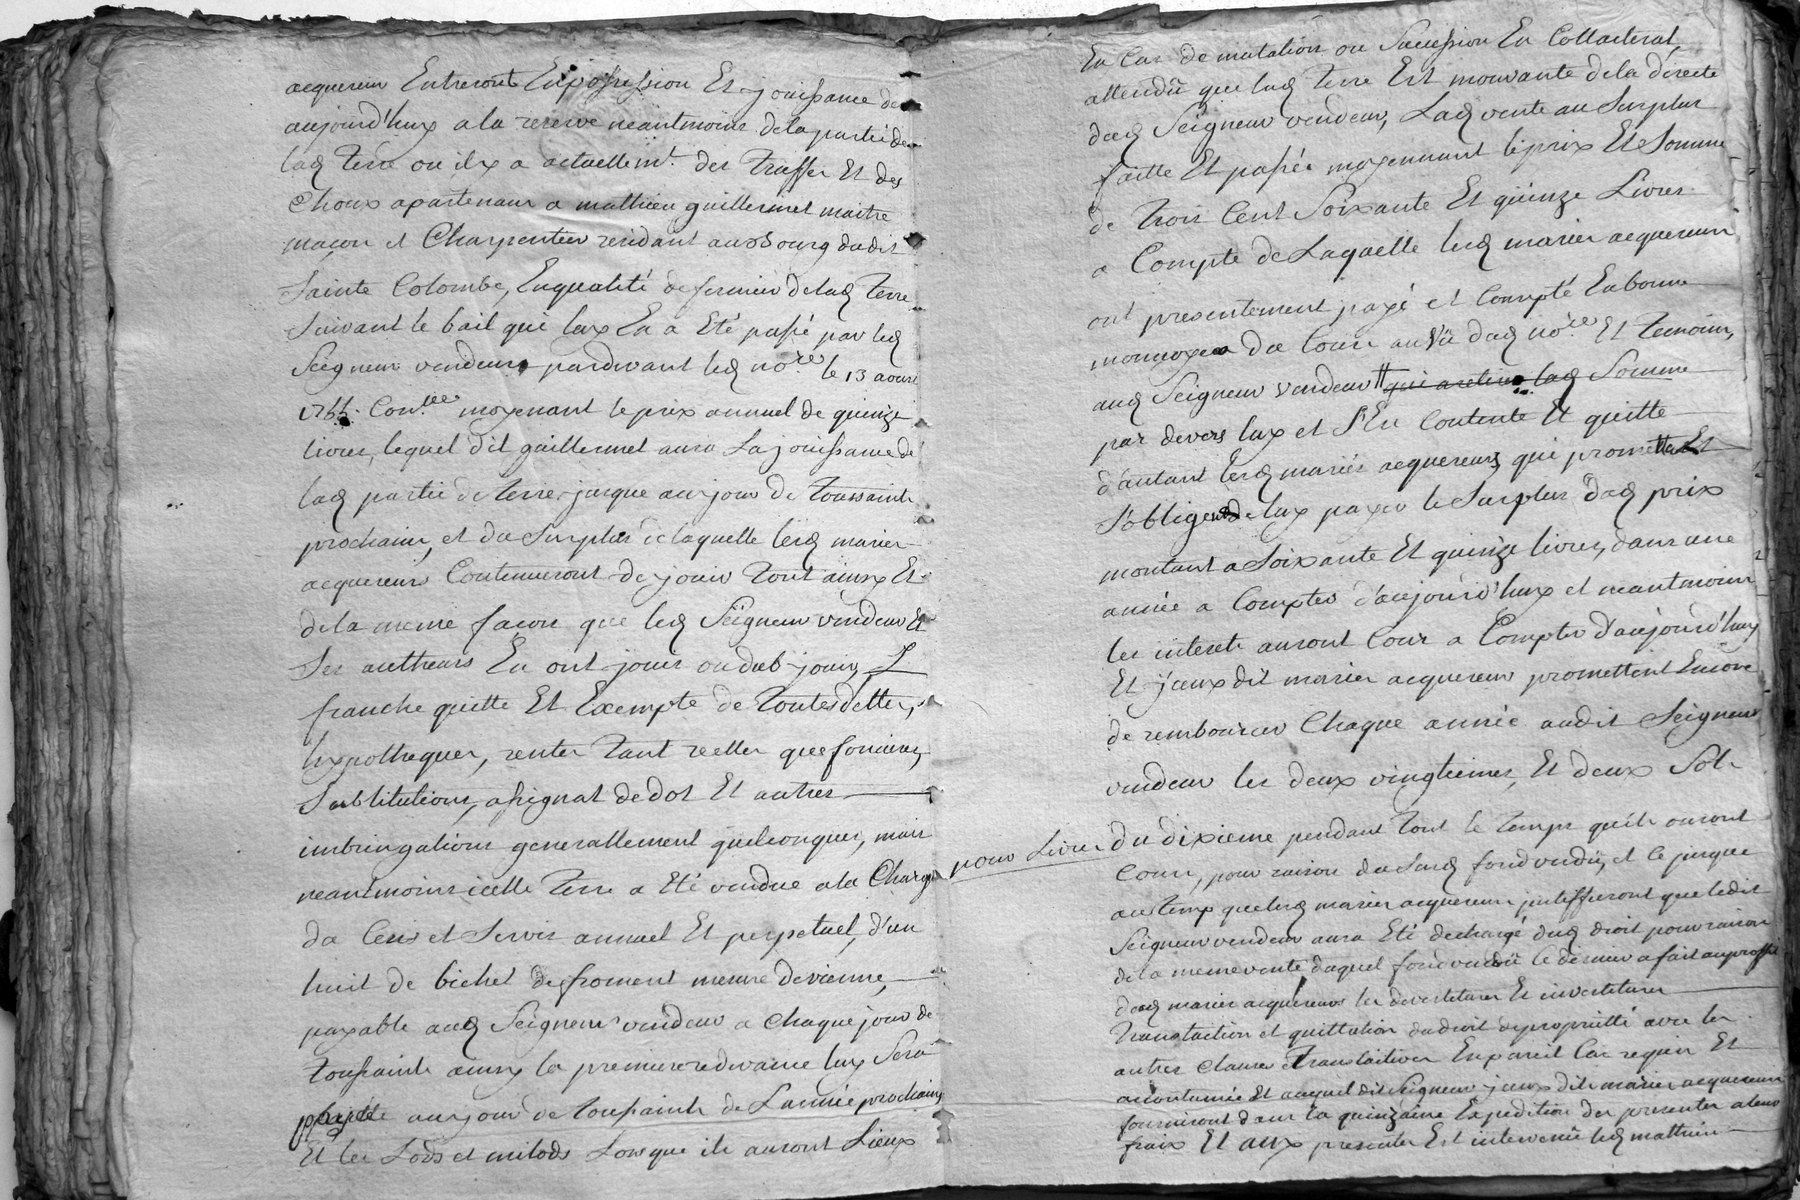 acquereurs Entreront En possession Et jouissance des
aujourd'huy a la reserve neantmoins de la partie de
lad terre ou il y a actuellemt. des Truffes Et des
choux apartenans a mathieu guillermet maitre
maçon et Charpentier residant au Bourg dudit
Sainte Colombe, En qualité de fermier de lad Terre
Suivant le bail qui luy En a Eté passé par led
Seigneur vendeur pardevant led nore le 13 aoust
1766. moyenant le prix annuel de quinze
livres, lequel dit guillermet aura La jouissance de
lad partie de terre jusque au jour de Toussaints
prochain, et du Surplus de laquelle lesd mariés
acquereurs Continueront de jouir Tout ainsy Et
de la meme façon que led Seigneur vendeur Et
Ses autheurs En ont jouis ou deub jouir,
franche quitte Et Exempte de Toutes dettes,
hypotheques, rentes Tant reelles que foncieres,
Substitutions, assignat de dot Et autres
imbringations generallement quelconques, mais
neantmoins icelle Terre a Eté vendue a la Charge
du Cens et Servis annuel Et perpetuel, d'un
huit de bichet de froment mesure de vienne,
payable aud Seigneur vendeur a chaque jour de
Toussaints ainsy la premiere redevance luy Sera
payée au jour de Toussaints de L'année prochaine
Et les Lods et milods Lorsque ils auront Lieux
En Cas de mutation ou Succession En Collacteral,
attendû que lad Terre Est mouvante de la directe
dud Seigneur vendeur, Lad vente au Surplus
faitte Et passée moyennant le prix Et Somme
de Trois Cent Soixante Et quinze Livres
a Compte de Laquelle lesd mariés acquereurs
ont presentement payé et Compté En bonne
monnoye du Cours au Vû dud nore Et Temoins,
aud Seigneur vendeur qui a retiré lad Somme
par devers luy et S'En Contente Et quitte
d'autant lesd mariés acquereurs qui promettent Et
S'obligent de luy payer le Surplus dud prix
montant a Soixante Et quinze livres, dans une
année a Compter d'aujourd'huy et neantmoins
les interets auront Cour a Compter d'aujourd'huy
Et yceux dit mariés acquereurs promettent Encore
de rembourcer Chaque année audit Seigneur
vendeur les deux vingtiemes, Et deux Sols
pour Livre du dixieme pendant Tout le Temps qu'ils auront
Cour, pour raison du Susd fond vendû, et ce jusque
au Temps que lesd mariés acquereurs justiffieront que ledit
Seigneur vendeur aura Eté dechargé dud droit pour raison
de la meme vente duquel fond vendû le dernier a fait au proffit
desd mariés acquereurs les devestitures Et investitures
Translaction et quittation du droit de proprietté avec les
autres Clauses Translatives En pareil Cas requis Et
accoutumée Et auquel dit Seigneur yceux dits mariés acquereurs
fourniront dans la quinzaine Expedition des presentes a leurs
fraix Et aux presentes Est intervenû led mathieu